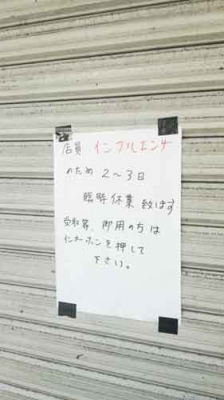 店員 インフルエンザ
のため 2～3日
臨時休業 致します
受取等、御用の方は
インターホンを押して
下さい。